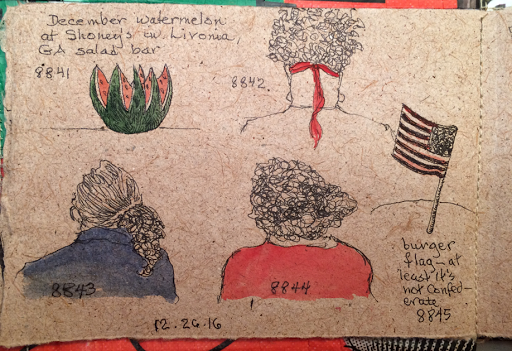 December watermelon
at Shoney's in Livonia
GA salad bar
8841
8842.
8843
8844
burger
flag — at
least it's
not Confed-
erate
8845
12.26.16